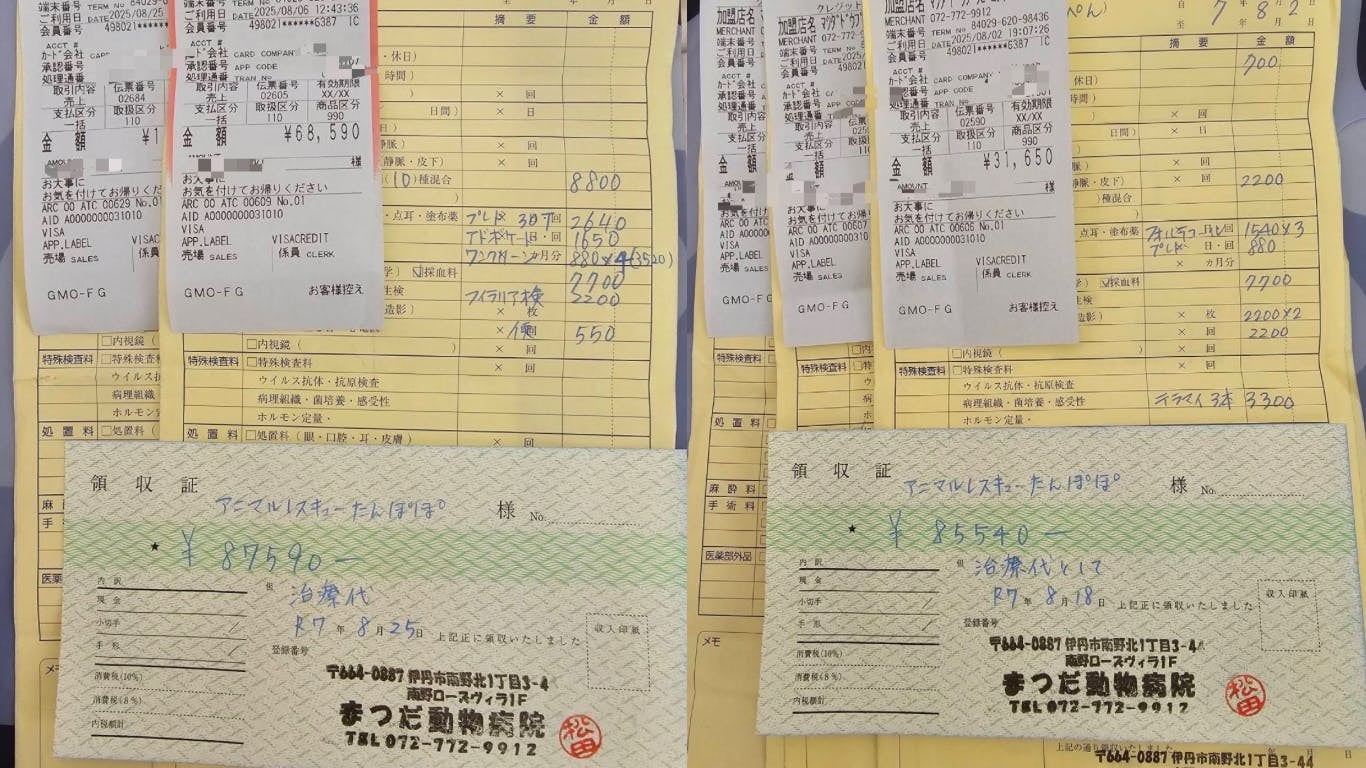 端末番号 TERM No 84029-6
ご利用日 DATE 2025/08/25
会員番号 498021
ACCT #
カード会社
承認番号
処理通番
取引内容 伝票番号
売上 02684
支払区分 取扱区分
一括 110
金 額 ¥1
AMOUNT
お大事に
お気を付けてお帰りくだ
ARC 00 ATC 00629 No.01
AID A0000000031010
VISA
APP.LABEL VISA
売場 SALES
GMO-FG
ご利用日 DATE 2025/08/06 12:43:36
会員番号 498021******6387 IC
ACCT #
カード会社 CARD COMPANY
承認番号 APP CODE
処理通番 TRAN No
取引内容 伝票番号 有効期限
売上 02605 XX/XX
支払区分 取扱区分 商品区分
一括 110 990
金 額 ¥68,590
様
お大事に
お気を付けてお帰りください
ARC 00 ATC 00609 No.01
AID A0000000031010
VISA
APP.LABEL VISACREDIT
売場 SALES 係員 CLERK
GMO-FG お客様控え
年 月 日
摘 要 金 額
・休日)
時間)
× 回
日間) × 日
× 回
静脈・皮下) × 回
(10)種混合 8800
・点耳・塗布薬 プレド 30T 回 2640
アドボケート 日・回 1650
ワンクリーン カ月分 880×4(3520)
☑採血料 7700
生検 フィラリア検 2200
造影) × 枚
× 便 回 550
□内視鏡( ) × 回
特殊検査料 □特殊検査料 × 回
ウイルス抗体・抗原検査
病理組織・菌培養・感受性
ホルモン定量・
処置料 □処置料(眼・口腔・耳・皮膚) × 回
領 収 証
アニマルレスキューたんぽぽ 様 No.
★ ¥87590-
但 治療代
R7 年 8 月 25 日 上記正に領収いたしました
内 訳
現 金
小切手
手 形
消費税(10%)
消費税(8%)
内税額計
登録番号
収入印紙
〒664-0887 伊丹市南野北1丁目3-4
南野ローズヴィラ1F
まつだ動物病院
TEL 072-772-9912
松田
クレジット
加盟店名 マツダドウブ
MERCHANT 072-772-9912
端末番号 TERM No 84029-620-98436
ご利用日 DATE 2025/08/02 19:07:26
会員番号 498021******6387 IC
ACCT #
カード会社 CARD COMPANY
承認番号 APP CODE
処理通番 TRAN No
取引内容 伝票番号 有効期限
売上 02590 XX/XX
支払区分 取扱区分 商品区分
一括 110 990
金 額 ¥31,650
AMOUNT 様
お大事に
お気を付けてお帰りください
ARC 00 ATC 00606 No.01
AID A0000000031010
VISA
APP.LABEL VISACREDIT
売場 SALES 係員 CLERK
GMO-FG お客様控え
ぺん)
自 7 年 8 月 2
摘 要 金 額
700
・休日)
時間)
× 回
日間) × 日
× 回
静脈・皮下) × 回 2200
種混合
・点耳・塗布薬 回 1540×3
日・回 880
× カ月分
☑採血料 7700
生検
造影) × 枚 2200×2
× 回 2200
□内視鏡( ) × 回
特殊検査料 □特殊検査料 × 回
ウイルス抗体・抗原検査
病理組織・菌培養・感受性 テラマイ3本 3300
ホルモン定量・
麻酔料
手術料
医薬部外品
メモ
領 収 証
アニマルレスキューたんぽぽ 様 No.
★ ¥85540-
但 治療代として
R7 年 8 月 18 日 上記正に領収いたしました
内 訳
現 金
小切手
手 形
消費税(10%)
消費税(8%)
内税額計
登録番号
収入印紙
〒664-0887 伊丹市南野北1丁目3-4
南野ローズヴィラ1F
まつだ動物病院
TEL 072-772-9912
松田
上記の通り領収いたしました
〒664-0887 伊丹市南野北1丁目3-44